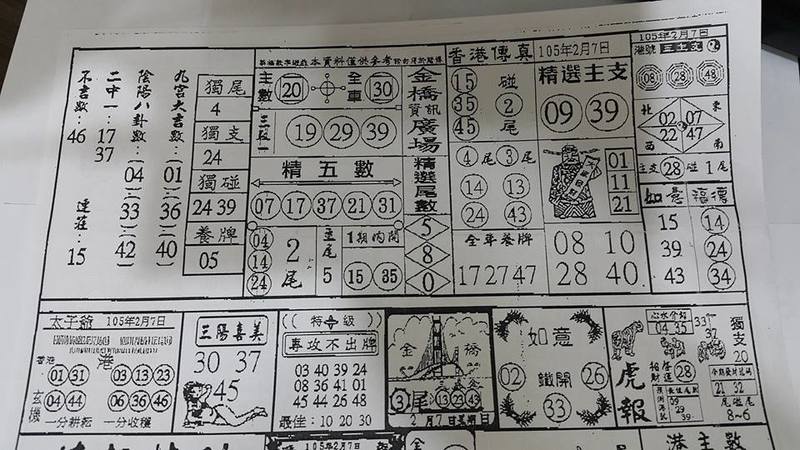 不言數:46
二中一:17 37
連莊:15
陰陽八卦數:(04) 33 (42)
九宮大吉數:(01) 36 (40)
獨尾
4
獨支
24
獨碰
24 39
養牌
05
本資料僅供參考
主數 20
全車 30
三段一
19 29 39
精五數
07 17 37 21 31
04
14
24
2尾
主尾
5
1期內開
15 35
金橋資訊廣場
精選尾數
5
8
0
香港傳真 105年2月7日
15 碰
35 2
45 尾
4尾 3尾
14 13
24 43
全年養牌
17 27 47
精選主支
09 39
01
11
21
08 10
28 40
105年2月7日
港號 主主支
08 28 48
北 東
02 07
22 47
西 南
主支 28 碰 1尾
如意 福德
15 14
39 24
43 34
太子爺 105年2月7日
香港
港
01 31 03 13 23
玄機
04 44 06 36 46
一分耕耘 一分收穫
三陽喜美
30 37
45
((特令級))
專攻不出牌
03 40 39 24
08 36 41 01
45 44 26 48
最佳:10 20 30
金橋
3尾 13 23 43
2月7日星期日
如意
02 鐵開 26
33
心水介紹
04 35
33
37
獨支
20
虎報
招啓財運 28
39
29
39
21 32
尾碰尾
8~6
105年2月7日
港主數